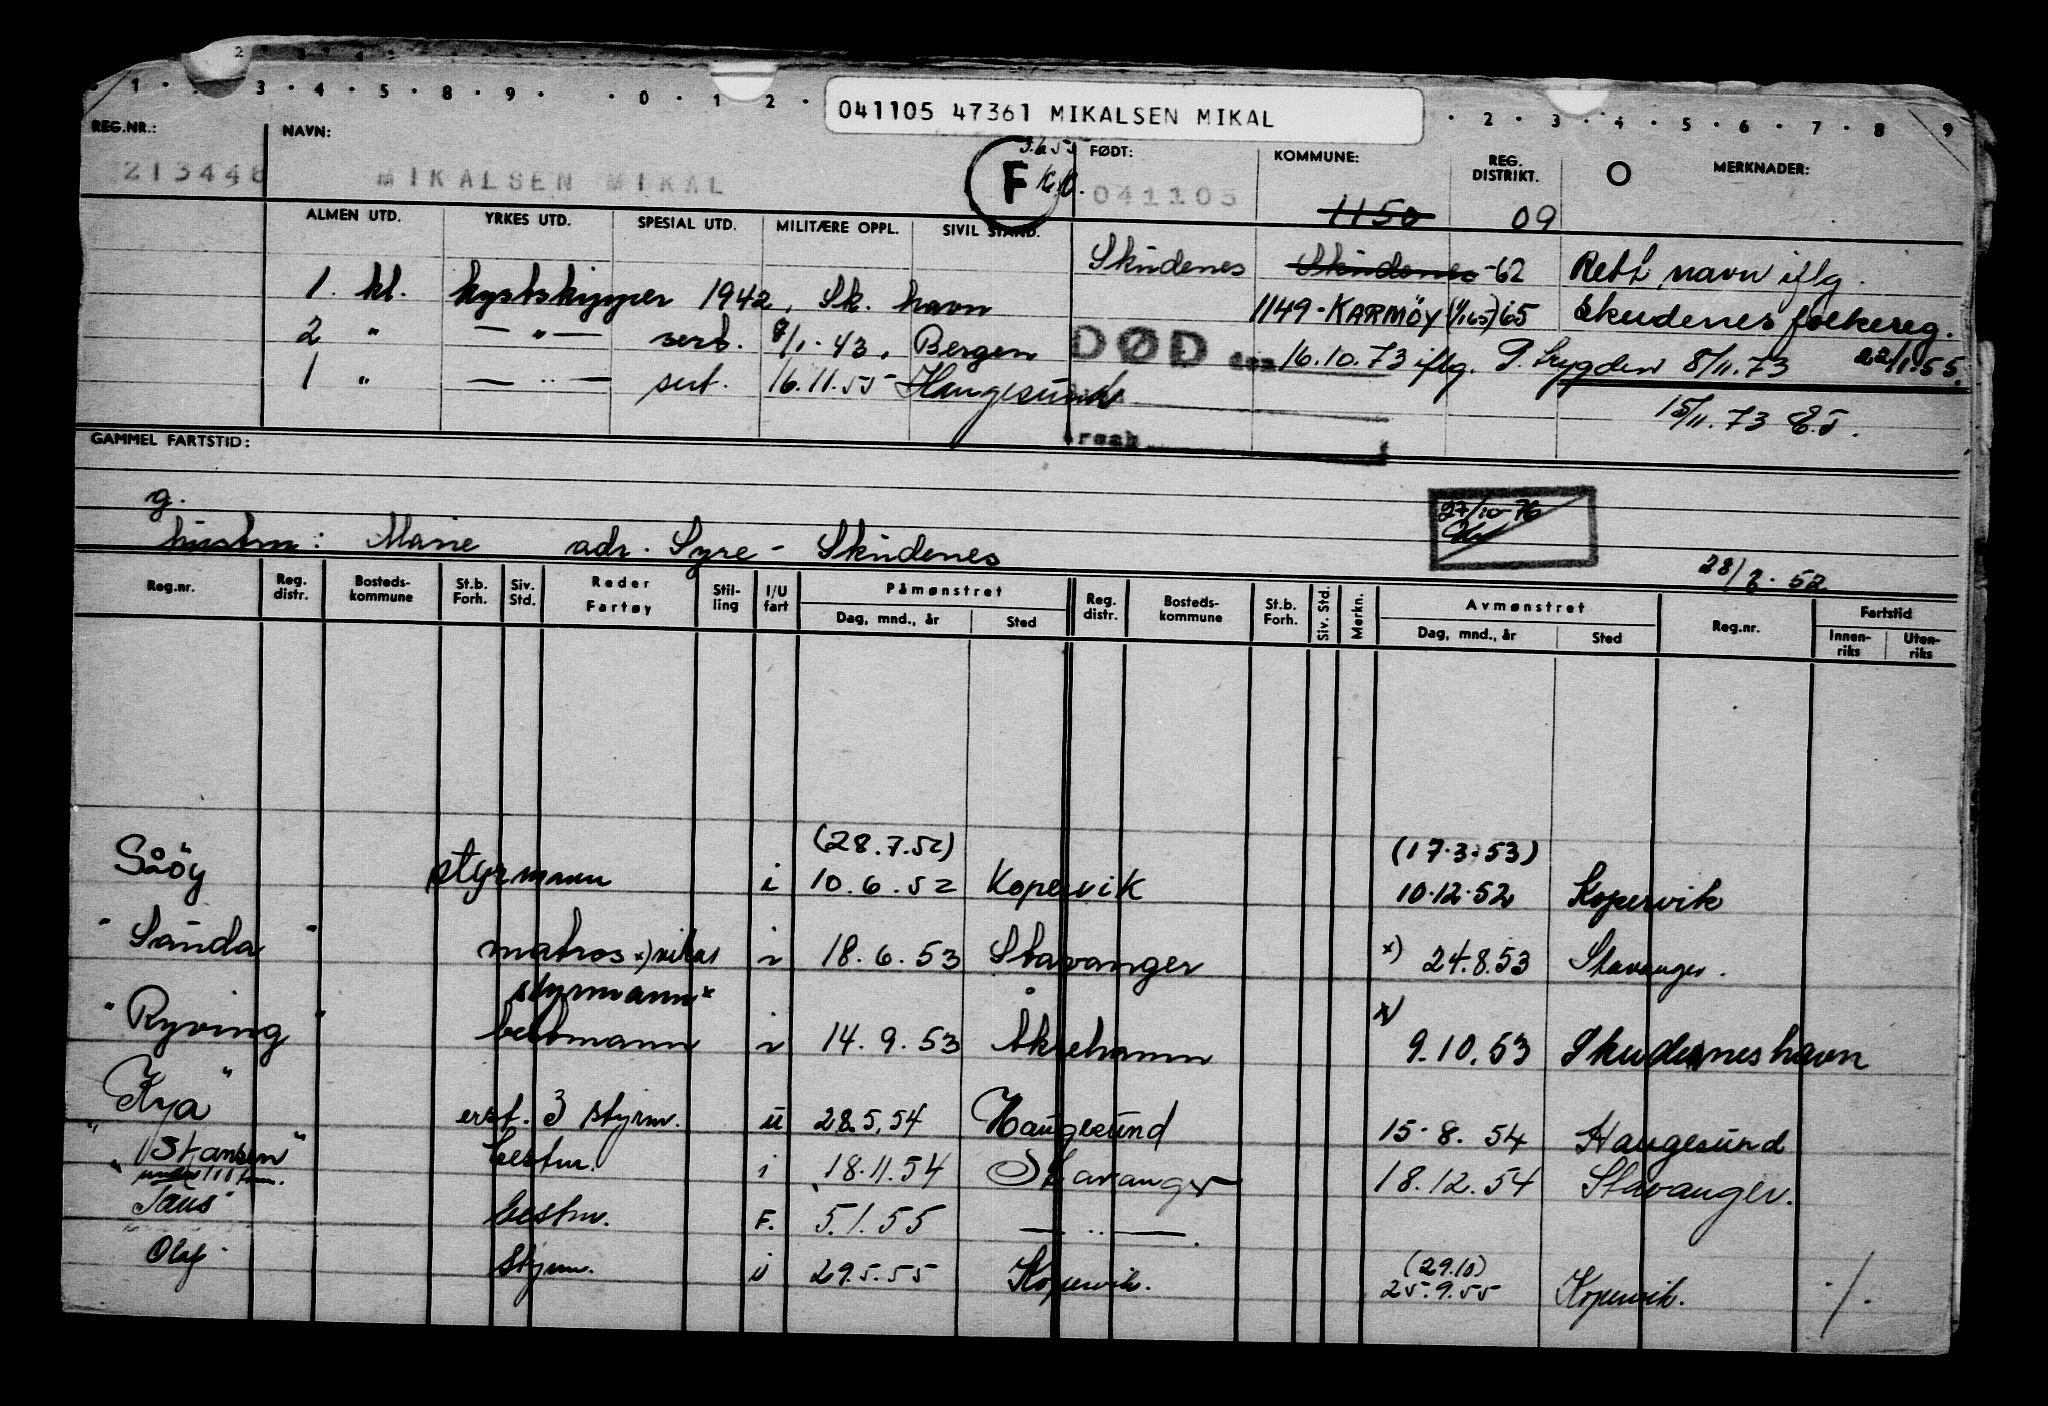 041105 47361 MIKALSEN MIKAL
REG.NR.: NAVN: FØDT: KOMMUNE: REG. DISTRIKT. MERKNADER:
213448 MIKALSEN MIKAL F 3.6.55 041105 1150 09
ALMEN UTD. YRKES UTD. SPESIAL UTD. MILITÆRE OPPL. SIVIL STAND.
Skudenes Skudenes -62 Rett navn iflg.
1. kl. kystskipper 1942, Sk. havn 1149-KARMÖY (1/1.65) 65 Skudenes folkereg.
2 " — " — sert. 8/1-43, Bergen DØD den 16.10.73 iflg. P. trygden 8/11.73 22/1.55.
1 " — " — sert. 16.11.55 Haugesund 15/11.73 E.J.
GAMMEL FARTSTID:
g.
27/10-76
hustru: Marie adr. Syre - Skudenes
28/8.52
Reg.nr. Reg. distr. Bosteds-kommune St.b. Forh. Siv. Std. Reder Fartøy Stil-ling I/U fart Påmønstret Dag, mnd., år Sted Reg. distr. Bosteds-kommune St.b. Forh. Siv. Std. Merkn. Avmønstret Dag, mnd., år Sted Reg.nr. Fartstid Innen-riks Uten-riks
(28.7.52) (17.3.53)
Såöy styrmann i 10.6.52 Kopervik 10.12.52 Kopervik
"Sauda" matros x) vikar i 18.6.53 Stavanger x) 24.8.53 Stavanger.
styrmann x
"Ryving" bestmann i 14.9.53 Åkrehamn x) 9.10.53 Skudeneshavn
Kya" erst. 3 styrm. u 28.5.54 Haugesund 15.8.54 Haugesund
"Stansen" bestm. i 18.11.54 Stavanger 18.12.54 Stavanger.
"Taus" bestm. F. 5.1.55 — " —.
Olaf styrm. u 29.5.55 Kopervik. (29.10) 25.9.55 Kopervik.